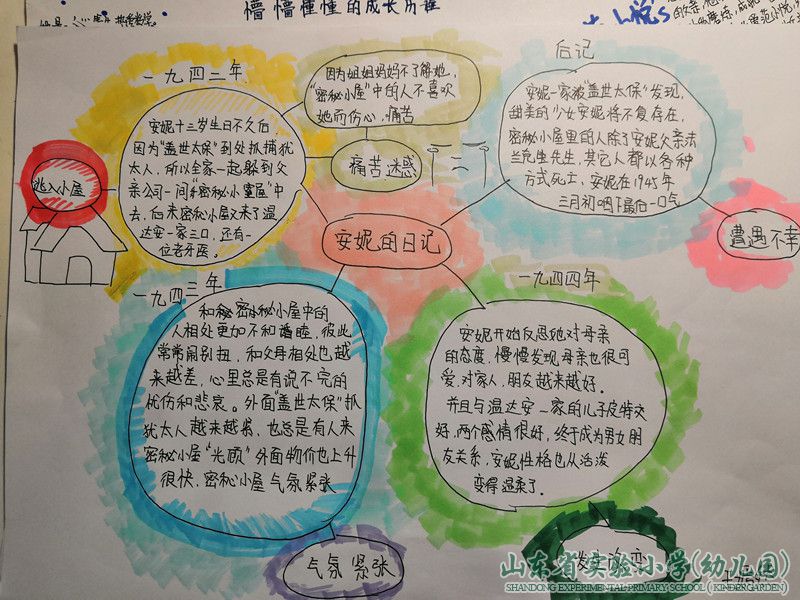 懵懵懂懂的成长历程
一九四二年
安妮十三岁生日不久后,
因为“盖世太保”到处抓捕犹
太人,所以全家一起躲到父
亲公司一间“秘密小屋”中
去,后来密秘小屋又来了温
达安一家三口,还有一
位老牙医。
逃入小屋
因为姐姐妈妈不了解她,
“密秘小屋”中的人不喜欢
她而伤心,痛苦
痛苦迷惑
后记
安妮一家被“盖世太保”发现,
甜美的少女安妮将不复存在,
密秘小屋里的人除了安妮父亲法
兰克生先生,其它人都以各种
方式死亡,安妮在1945年
三月初咽下最后一口气
遭遇不幸
安妮的日记
一九四三年
和秘密小屋中的
人相处更加不和睦,彼此
常常闹别扭,和父母相处也越
来越差,心里总是有说不完的
忧伤和悲哀。外面“盖世太保”抓
犹太人越来越紧,也总是有人来
密秘小屋“光顾”外面物价也上升
很快,密秘小屋气氛紧张
气氛紧张
一九四四年
安妮开始反思她对母亲
的态度,慢慢发现母亲也很可
爱,对家人,朋友越来越好。
并且与温达安一家的儿子皮特交
好,两个感情很好,终于成为男女朋
友关系,安妮性格也从活泼
变得温柔了。
发生改变
山东省实验小学(幼儿园)
SHANDONG EXPERIMENTAL PRIMARY SCHOOL (KINDERGARDEN)